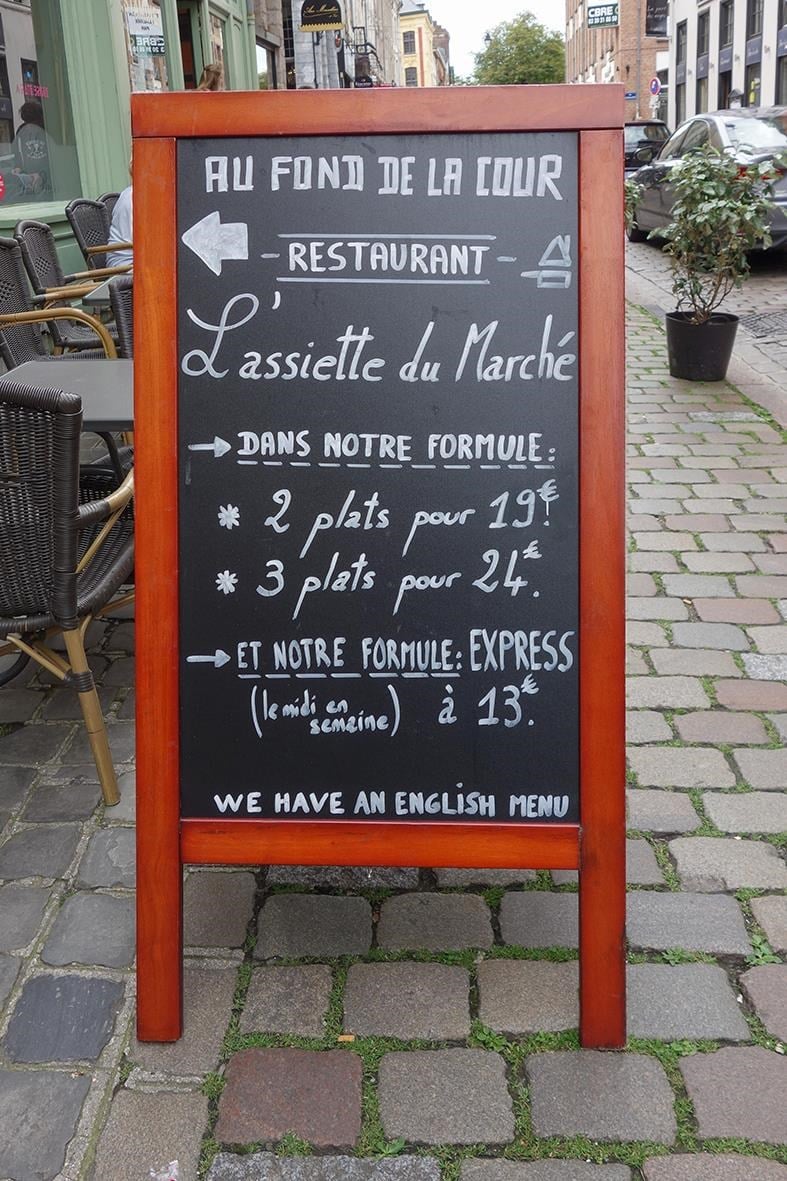 AU FOND DE LA COUR
- RESTAURANT -
L'assiette du Marché
→ DANS NOTRE FORMULE:
* 2 plats pour 19€.
* 3 plats pour 24€.
→ ET NOTRE FORMULE: EXPRESS
(le midi en semaine) à 13€.
WE HAVE AN ENGLISH MENU
CBRE
CBRE